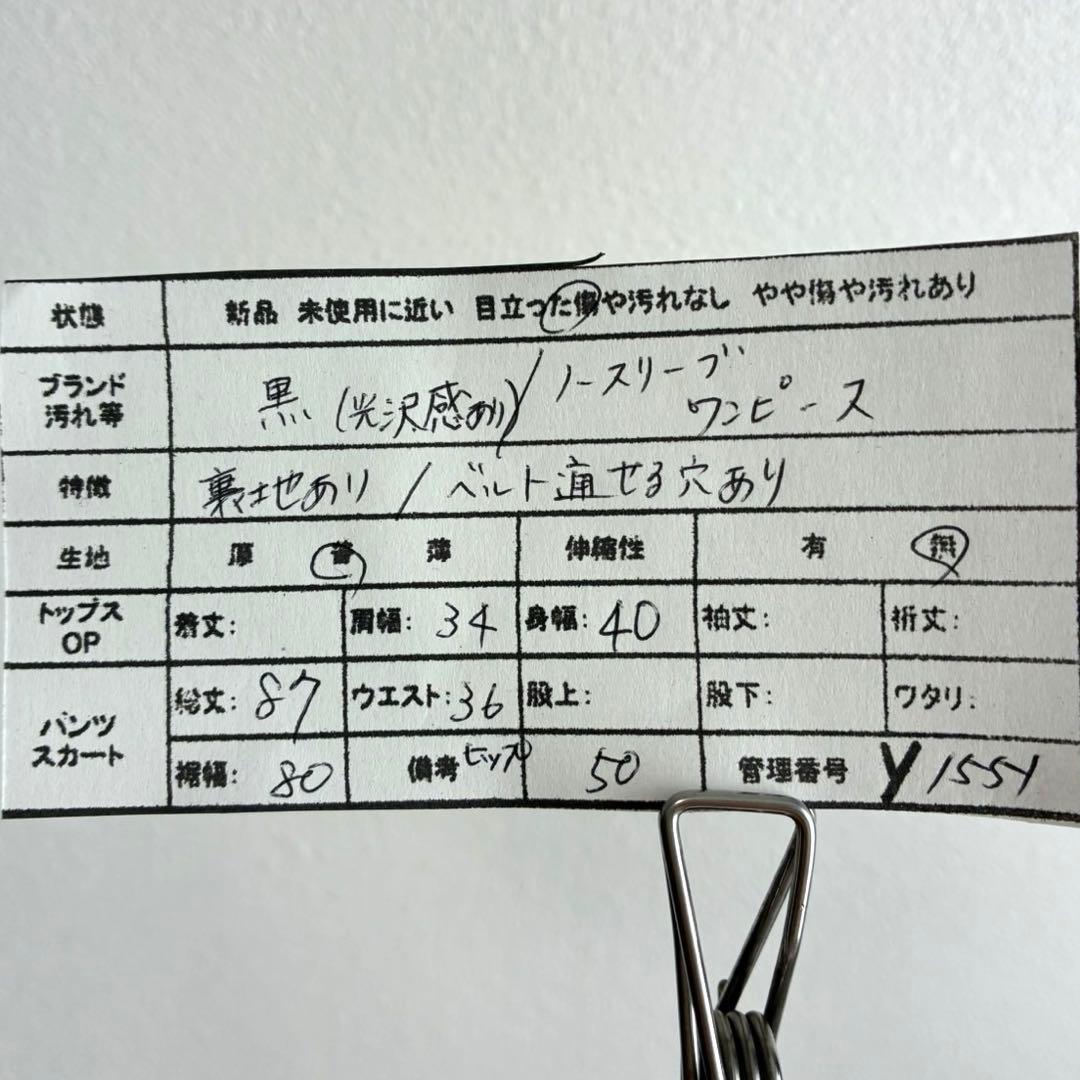 状態 新品 未使用に近い 目立った傷や汚れなし やや傷や汚れあり
ブランド 汚れ等 黒(光沢感あり)/ノースリーブ
ワンピース
特徴 裏地あり / ベルト通せる穴あり
生地 厚 普 薄 伸縮性 有 無
トップス OP 着丈: 肩幅: 34 身幅: 40 袖丈: 裄丈:
パンツ スカート 総丈: 87 ウエスト: 36 股上: 股下: ワタリ:
裾幅: 80 備考 ヒップ 50 管理番号 Y1551